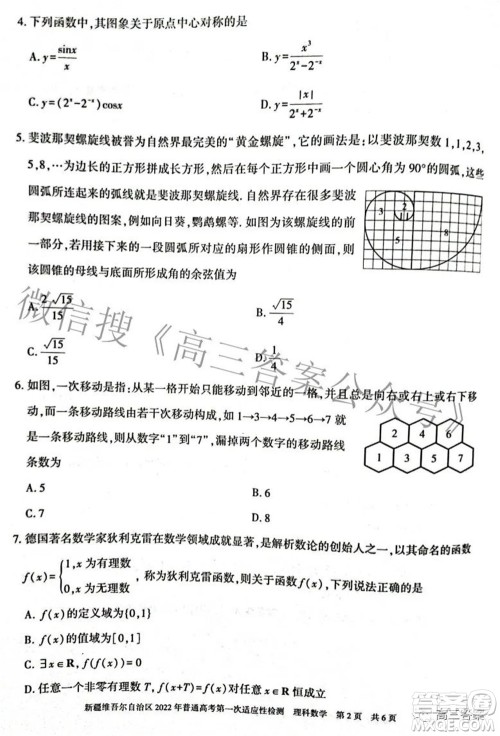 4. 下列函数中,其图象关于原点中心对称的是
A. y=sinx/x B. y=x³/(2ˣ-2⁻ˣ)
C. y=(2ˣ-2⁻ˣ)cosx D. y=|x|/(2ˣ-2⁻ˣ)
5. 斐波那契螺旋线被誉为自然界最完美的“黄金螺旋”,它的画法是:以斐波那契数1,1,2,3,
5,8,…为边长的正方形拼成长方形,然后在每个正方形中画一个圆心角为90°的圆弧,这些
圆弧所连起来的弧线就是斐波那契螺旋线.自然界存在很多斐波那契
螺旋线的图案,例如向日葵、鹦鹉螺等.右图为该螺旋线的前一部分,
如果用接下来的一段圆弧所对应的扇形作圆锥的侧面,则
该圆锥的母线与底面所形成角的余弦值为
3
2
5
8
A. 2√15/15 B. √15/4
C. √15/15 D. 1/4
6. 如图,一次移动是指:从某一格开始只能移动到邻近的一格,并且总
是向右移动,而一条移动路线由若干次移动构成,如1→3→4→5→6→7是
一条移动路线,则从数字“1”到“7”,漏掉两个数字的移动路线
条数为
2 4 6
1 3 5 7
A. 5 B. 6
C. 7 D. 8
7. 德国著名数学家狄利克雷在数学领域成就显著,是解析数论的创始人之一,以其命名的函数
f(x)={1,x为有理数
0,x为无理数, 称为狄利克雷函数,则关于函数f(x),下列说法正确的是
A. f(x)的定义域为{0,1}
B. f(x)的值域为[0,1]
C. ∃x∈R,f(f(x))=0
D. 任意一个非零有理数T,f(x+T)=f(x)对任意x∈R恒成立
新疆维吾尔自治区2022年普通高考第一次适应性检测 理科数学 第2页 共6页
微信搜《高三答案公众号》
高三答案